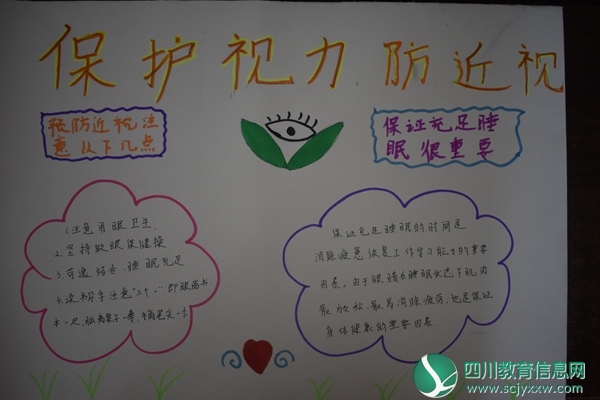 保护视力防近视
预防近视注
意以下几点
保证充足睡
眠很重要
1.注意用眼卫生.
2.坚持做眼保健操
3.劳逸结合.睡眠充足
4.读书写字注意"三个一"即眼离书
本一尺,胸离桌子一拳,手离笔尖一寸
保证充足睡眠的时间是
消除疲惫恢复工作学习能力的重要
因素。由于眼睛在睡眠状态下肌肉
最放松.最易消除疲劳,也是保证
身体健康的重要因素
四川教育信息网
www.scjyxxw.com